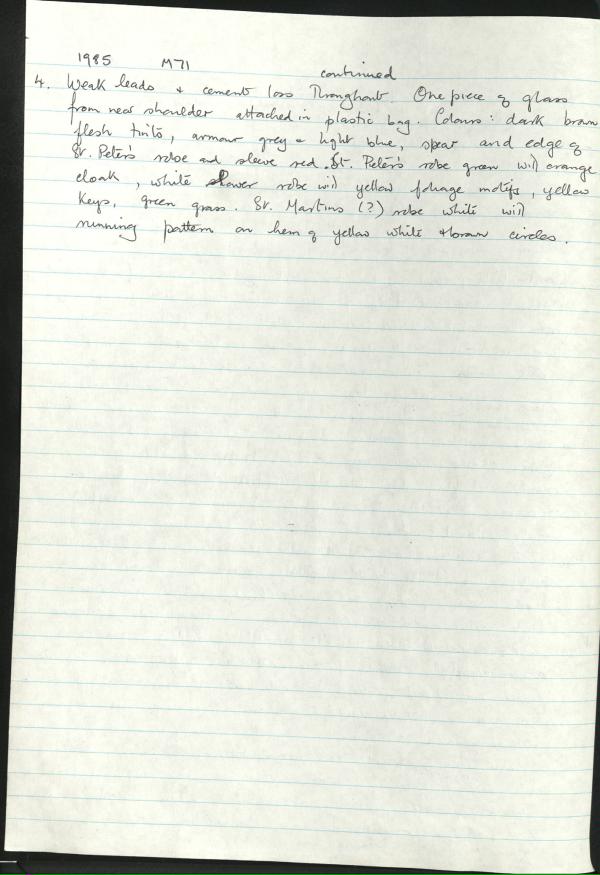 1985 M71
continued
4. Weak leads & cement loss Throughout. One piece of glass
from near shoulder attached in plastic bag. Colours: dark brown
flesh tints, armour grey & light blue, spear and edge of
St. Peter's robe and sleeve red. St. Peter's robe green with orange
cloak, white lower robe with yellow foliage motifs, yellow
Keys, green grass. St. Martins (?) robe white with
running pattern on hem of yellow white & brown circles.